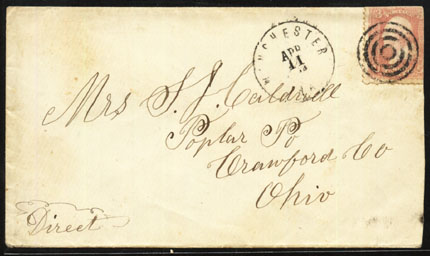 MANCHESTER
APR
11
Mrs S. J. Caldwell
Poplar Po
Crawford Co
Ohio
Direct